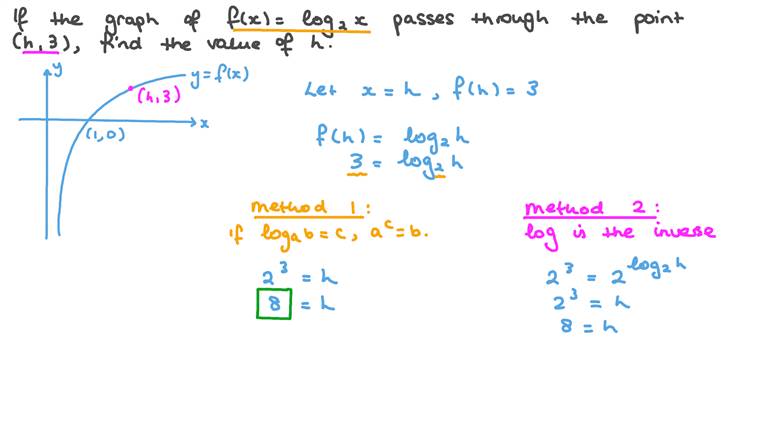 If the graph of f(x) = log₂ x passes through the point
(h, 3), find the value of h.
y
y = f(x)
(h, 3)
x
(1, 0)
Let x = h, f(h) = 3
f(h) = log₂ h
3 = log₂ h
method 1:
if logₐb = c, aᶜ = b.
2³ = h
8 = h
method 2:
log is the inverse
2³ = 2^log₂h
2³ = h
8 = h